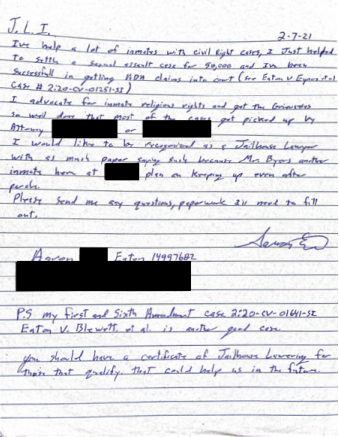 J.L.I. 2-7-21
I've help a lot of inmates with civil Right cases, I Just helped
To settle a sexual assault case for 50,000 and I've been
successfull in getting ADA claims into court (see Eaton v
Case # 2:20-CV-01251-SI)
I advocate for inmate religious rights and get the Grievances
so well done that most of the cases get picked up by
Attorney or
I would like to be recognized as a Jailhouse Lawyer
with as much paper saying such because Mr. Byers another
inmate here at plan on Keeping up even after
parole.
Please send me any questions, paperwork I'll need to fill
out.
Aaron Eaton 14997682
P.S my first and Sixth Amendment case 2:20-CV-01641-SI
Eaton V. Blewett, et al. is another good case.
you should have a certificate of Jailhouse Lawering for
those that qualify. that could help us in the future.